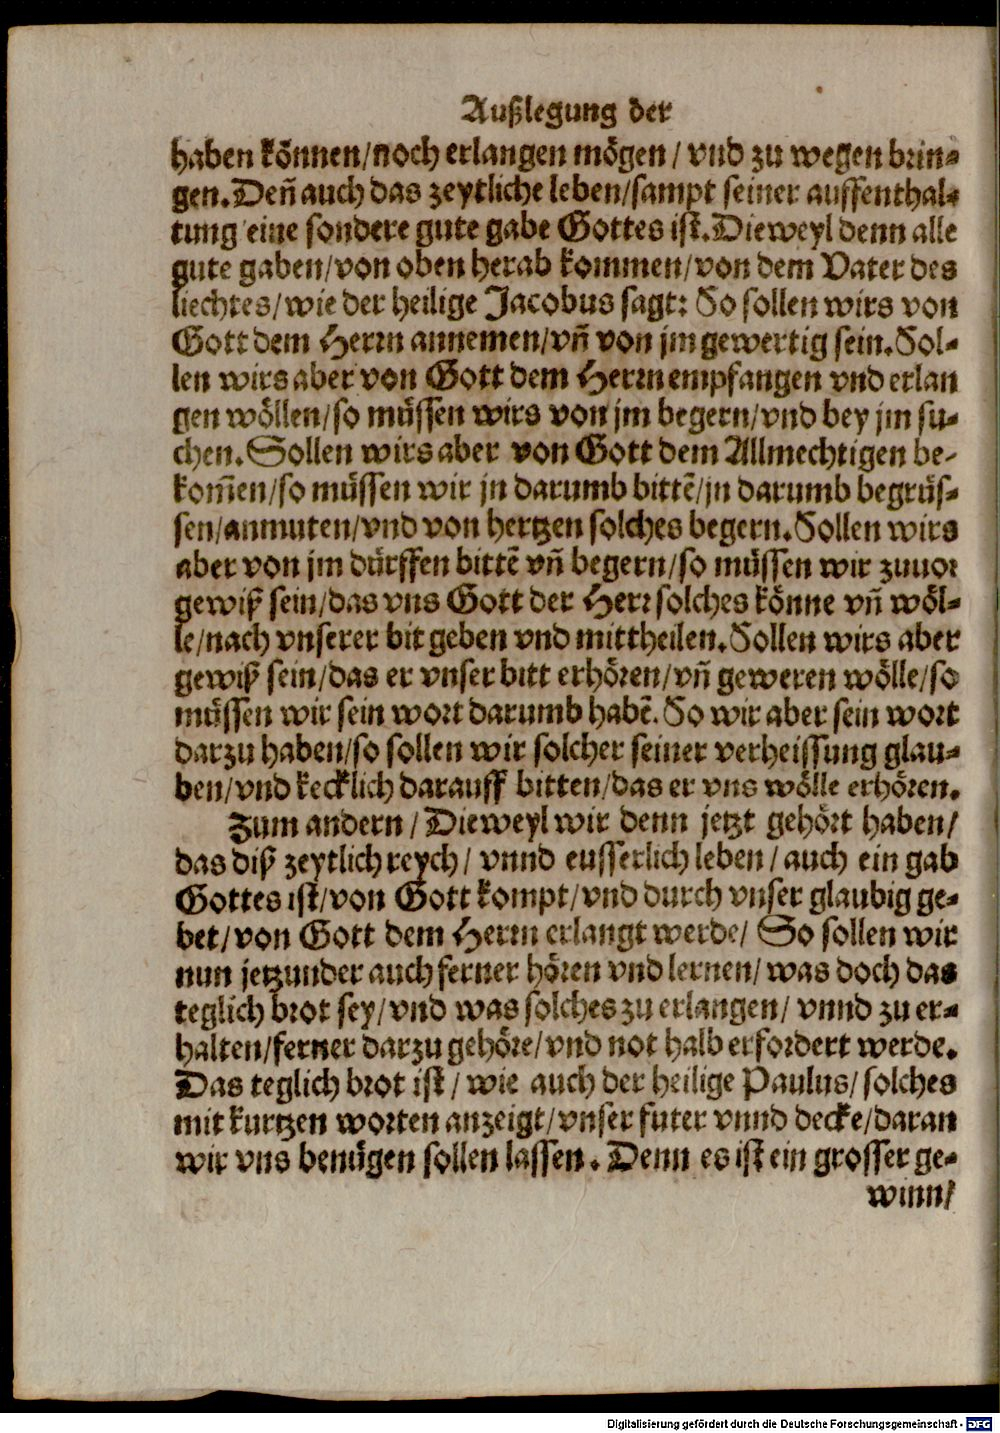 Außlegung der
haben können/noch erlangen mögen / vnd zu wegen brin-
gen. Deñ auch das zeytliche leben/sampt seiner auffenthal-
tung eine sondere gute gabe Gottes ist. Dieweyl denn alle
gute gaben/von oben herab kommen/von dem Vater des
liechtes/wie der heilige Jacobus sagt: So sollen wirs von
Gott dem Herrn annemen/vñ von jm gewertig sein. Sol-
len wirs aber von Gott dem Herrn empfangen vnd erlan
gen wöllen/so müssen wirs von jm begern/vnd bey jm su-
chen. Sollen wirs aber von Gott dem Allmechtigen be-
kom̃en/so müssen wir jn darumb bittẽ/jn darumb begrüs-
sen/anmuten/vnd von hertzen solches begern. Sollen wirs
aber von jm dürffen bittẽ vñ begern/so müssen wir zuuor
gewiß sein/das vns Gott der Herr solches könne vñ wöl-
le/nach vnserer bit geben vnd mittheilen. Sollen wirs aber
gewiß sein/das er vnser bitt erhören/vñ geweren wölle/so
müssen wir sein wort darumb habẽ. So wir aber sein wort
darzu haben/so sollen wir solcher seiner verheissung glau-
ben/vnd kecklich darauff bitten/das er vns wölle erhören.
Zum andern / Dieweyl wir denn jetzt gehört haben/
das diß zeytlich reych/ vnnd eusserlich leben / auch ein gab
Gottes ist/von Gott kompt/vnd durch vnser glaubig ge-
bet/von Gott dem Herrn erlangt werde/ So sollen wir
nun jetzunder auch ferner hören vnd lernen/ was doch das
teglich brot sey/vnd was solches zu erlangen/ vnnd zu er-
halten/ferner darzu gehöre/vnd not halb erfordert werde.
Das teglich brot ist / wie auch der heilige Paulus/ solches
mit kurtzen worten anzeigt/vnser futer vnnd decke/daran
wir vns benügen sollen lassen. Denn es ist ein grosser ge-
winn/
Digitalisierung gefördert durch die Deutsche Forschungsgemeinschaft - DFG